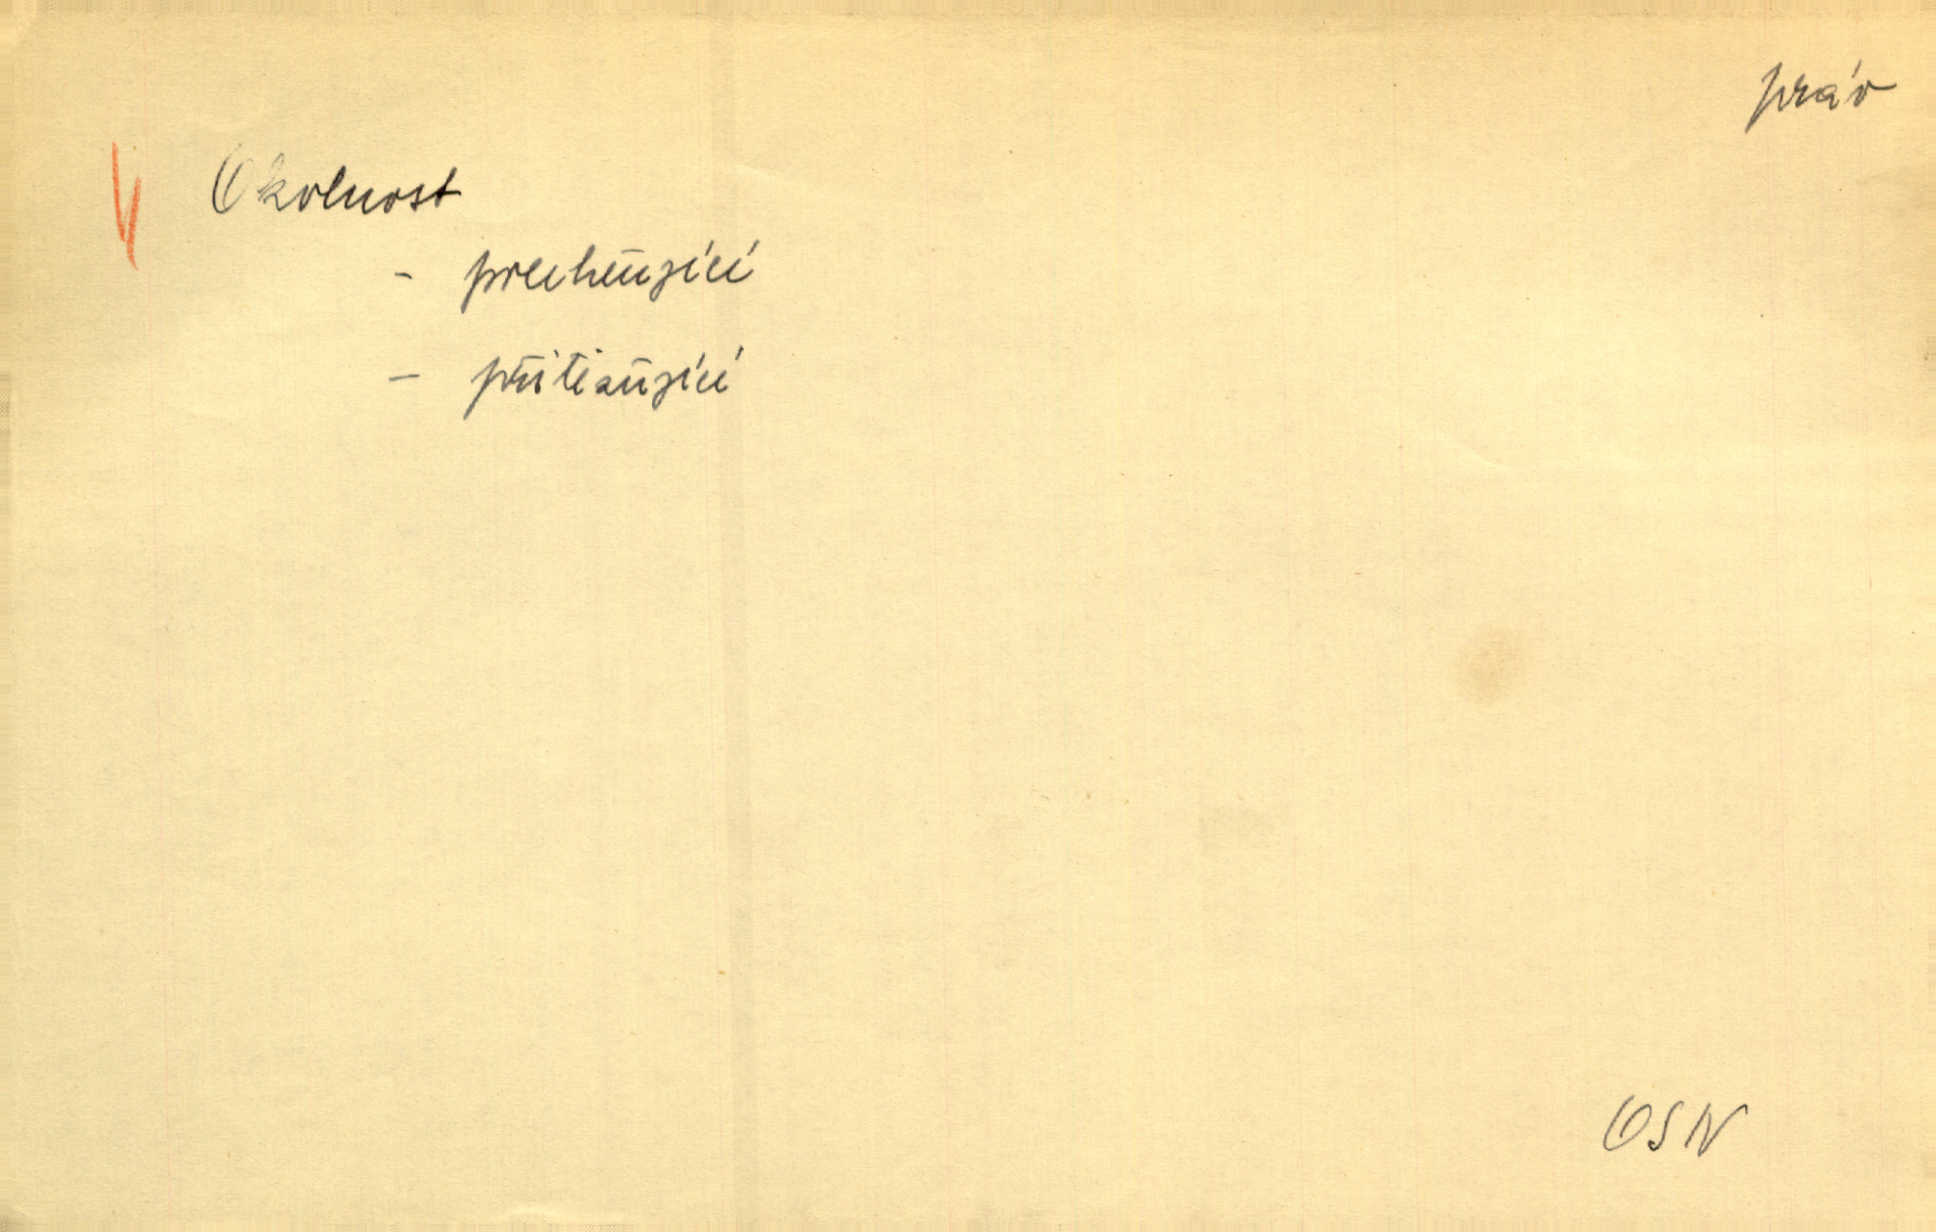 práv
Okolnost
- polehčující
- přitěžující
OSN